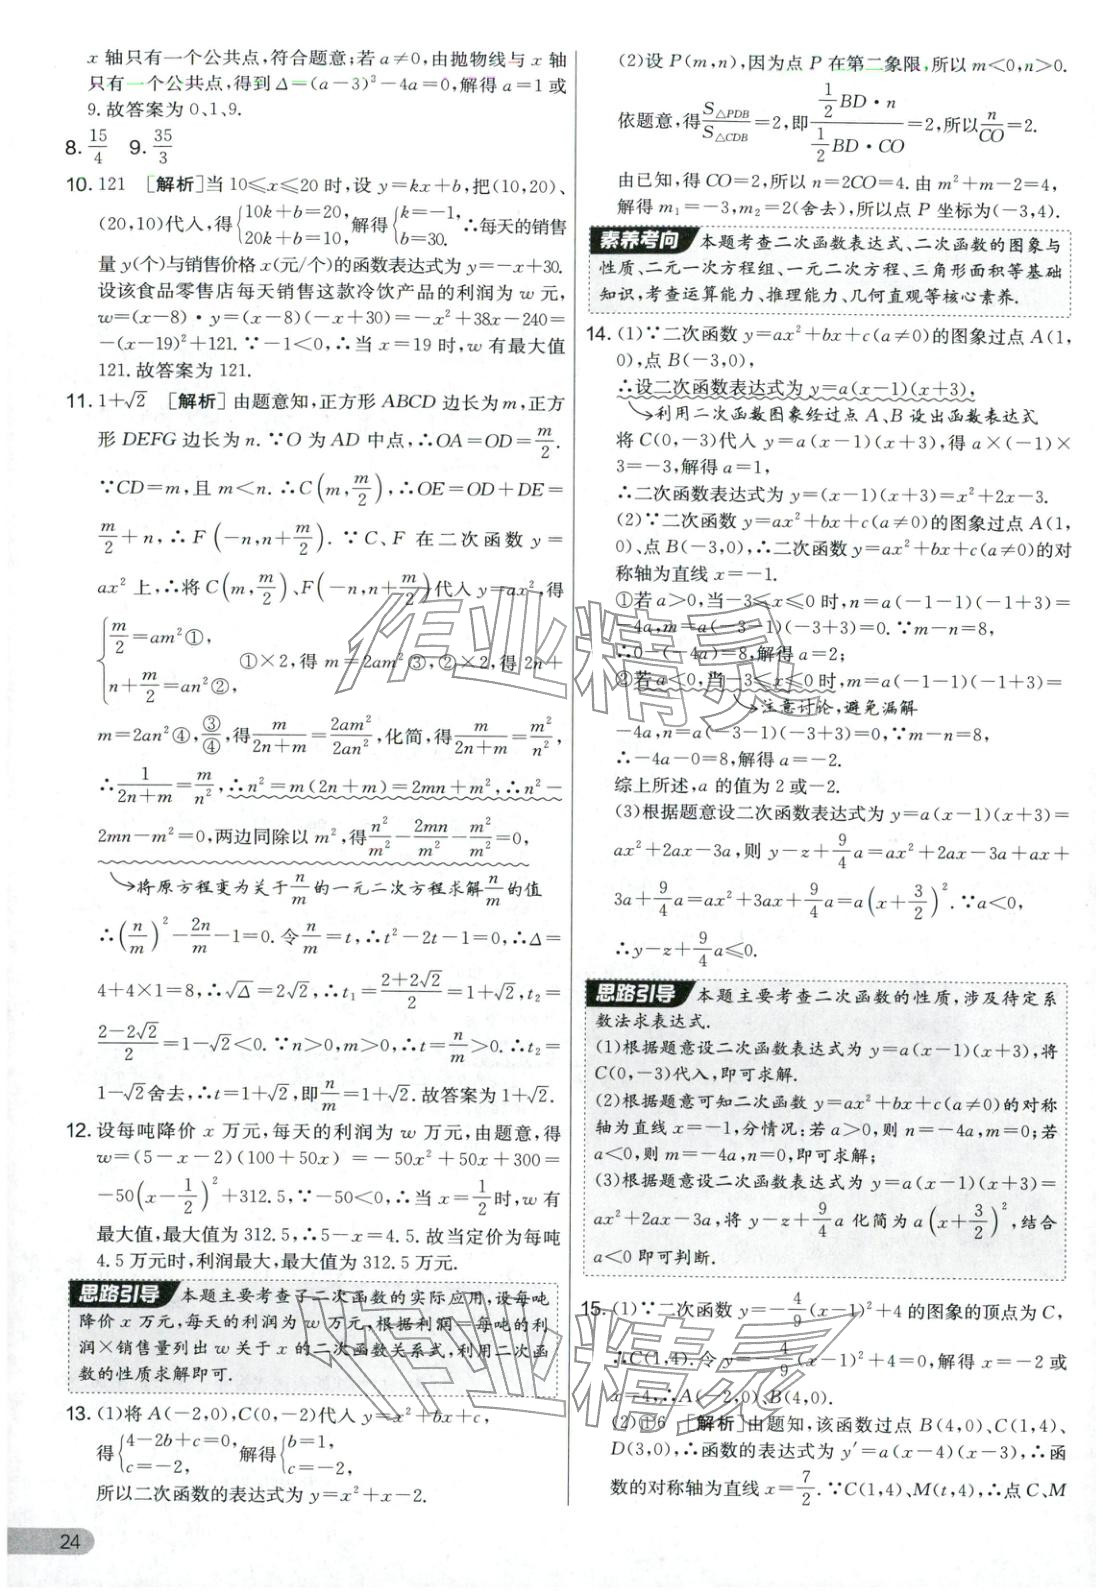 x 轴只有一个公共点,符合题意;若 a≠0,由抛物线与 x 轴
只有一个公共点,得到 Δ=(a-3)²-4a=0,解得 a=1 或
9. 故答案为 0、1、9.
8. 15/4 9. 35/3
10. 121 [解析]当 10≤x≤20 时,设 y=kx+b,把(10,20)、
(20,10)代入,得{10k+b=20, 20k+b=10, 解得{k=-1, b=30. ∴每天的销售
量 y(个)与销售价格 x(元/个)的函数表达式为 y=-x+30.
设该食品零售店每天销售这款冷饮产品的利润为 w 元,
w=(x-8)·y=(x-8)(-x+30)=-x²+38x-240=
-(x-19)²+121. ∵-1<0,∴当 x=19 时,w 有最大值
121. 故答案为 121.
11. 1+√2 [解析]由题意知,正方形 ABCD 边长为 m,正方
形 DEFG 边长为 n. ∵O 为 AD 中点,∴OA=OD=m/2.
∵CD=m,且 m<n. ∴C(m,m/2),∴OE=OD+DE=
m/2+n,∴F(-n,n+m/2). ∵C、F 在二次函数 y=
ax² 上,∴将 C(m,m/2)、F(-n,n+m/2)代入 y=ax²,得
{m/2=am²①, n+m/2=an²②, ①×2,得 m=2am²③,②×2,得 2n+
m=2an²④,③/④,得m/(2n+m)=2am²/2an²,化简,得m/(2n+m)=m²/n²,
∴1/(2n+m)=m/n²,∴n²=m(2n+m)=2mn+m²,∴n²-
2mn-m²=0,两边同除以 m²,得n²/m²-2mn/m²-m²/m²=0,
将原方程变为关于n/m的一元二次方程求解n/m的值
∴(n/m)²-2n/m-1=0. 令n/m=t,∴t²-2t-1=0,∴Δ=
4+4×1=8,∴√Δ=2√2,∴t₁=(2+2√2)/2=1+√2,t₂=
(2-2√2)/2=1-√2<0. ∵n>0,m>0,∴t=n/m>0. ∴t₂=
1-√2舍去,∴t=1+√2,即n/m=1+√2. 故答案为 1+√2.
12. 设每吨降价 x 万元,每天的利润为 w 万元,由题意,得
w=(5-x-2)(100+50x)=-50x²+50x+300=
-50(x-1/2)²+312.5,∵-50<0,∴当 x=1/2时,w 有
最大值,最大值为 312.5,∴5-x=4.5. 故当定价为每吨
4.5 万元时,利润最大,最大值为 312.5 万元.
思路引导 本题主要考查了二次函数的实际应用,设每吨
降价 x 万元,每天的利润为 w 万元,根据利润=每吨的利
润×销售量列出 w 关于 x 的二次函数关系式,利用二次函
数的性质求解即可.
13. (1)将 A(-2,0),C(0,-2)代入 y=x²+bx+c,
得{4-2b+c=0, c=-2, 解得{b=1, c=-2.
所以二次函数的表达式为 y=x²+x-2.
24
(2)设 P(m,n),因为点 P 在第二象限,所以 m<0,n>0.
依题意,得S△PDB/S△CDB=2,即(1/2 BD·n)/(1/2 BD·CO)=2,所以n/CO=2.
由已知,得 CO=2,所以 n=2CO=4. 由 m²+m-2=4,
解得 m₁=-3,m₂=2(舍去),所以点 P 坐标为(-3,4).
素养考向 本题考查二次函数表达式、二次函数的图象与
性质、二元一次方程组、一元二次方程、三角形面积等基础
知识,考查运算能力、推理能力、几何直观等核心素养.
14. (1)∵二次函数 y=ax²+bx+c(a≠0)的图象过点 A(1,
0),点 B(-3,0),
∴设二次函数表达式为 y=a(x-1)(x+3),
利用二次函数图象经过点 A、B 设出函数表达式
将 C(0,-3)代入 y=a(x-1)(x+3),得 a×(-1)×
3=-3,解得 a=1,
∴二次函数表达式为 y=(x-1)(x+3)=x²+2x-3.
(2)∵二次函数 y=ax²+bx+c(a≠0)的图象过点 A(1,
0)、点 B(-3,0),∴二次函数 y=ax²+bx+c(a≠0)的对
称轴为直线 x=-1.
①若 a>0,当-3≤x≤0 时,n=a(-1-1)(-1+3)=
-4a,m=a(-3-1)(-3+3)=0. ∵m-n=8,
∴0-(-4a)=8,解得 a=2;
②若 a<0,当-3≤x≤0 时,m=a(-1-1)(-1+3)=
注意讨论,避免漏解
-4a,n=a(-3-1)(-3+3)=0,∵m-n=8,
∴-4a-0=8,解得 a=-2.
综上所述,a 的值为 2 或-2.
(3)根据题意设二次函数表达式为 y=a(x-1)(x+3)=
ax²+2ax-3a,则 y-z+9/4a=ax²+2ax-3a+ax+
3a+9/4a=ax²+3ax+9/4a=a(x+3/2)². ∵a<0,
∴y-z+9/4a≤0.
思路引导 本题主要考查二次函数的性质,涉及待定系
数法求表达式.
(1)根据题意设二次函数表达式为 y=a(x-1)(x+3),将
C(0,-3)代入,即可求解.
(2)根据题意可知二次函数 y=ax²+bx+c(a≠0)的对称
轴为直线 x=-1,分情况:若 a>0,则 n=-4a,m=0;若
a<0,则 m=-4a,n=0,即可求解;
(3)根据题意设二次函数表达式为 y=a(x-1)(x+3)=
ax²+2ax-3a,将 y-z+9/4a 化简为 a(x+3/2)²,结合
a<0 即可判断.
15. (1)∵二次函数 y=-4/9(x-1)²+4 的图象的顶点为 C,
∴C(1,4). 令 y=-4/9(x-1)²+4=0,解得 x=-2 或
x=4,∴A(-2,0)、B(4,0).
(2)①6 [解析]由题知,该函数过点 B(4,0)、C(1,4)、
D(3,0),∴函数的表达式为 y′=a(x-4)(x-3),∴函
数的对称轴为直线 x=7/2. ∵C(1,4)、M(t,4),∴点 C、M
作业精灵
作业精灵